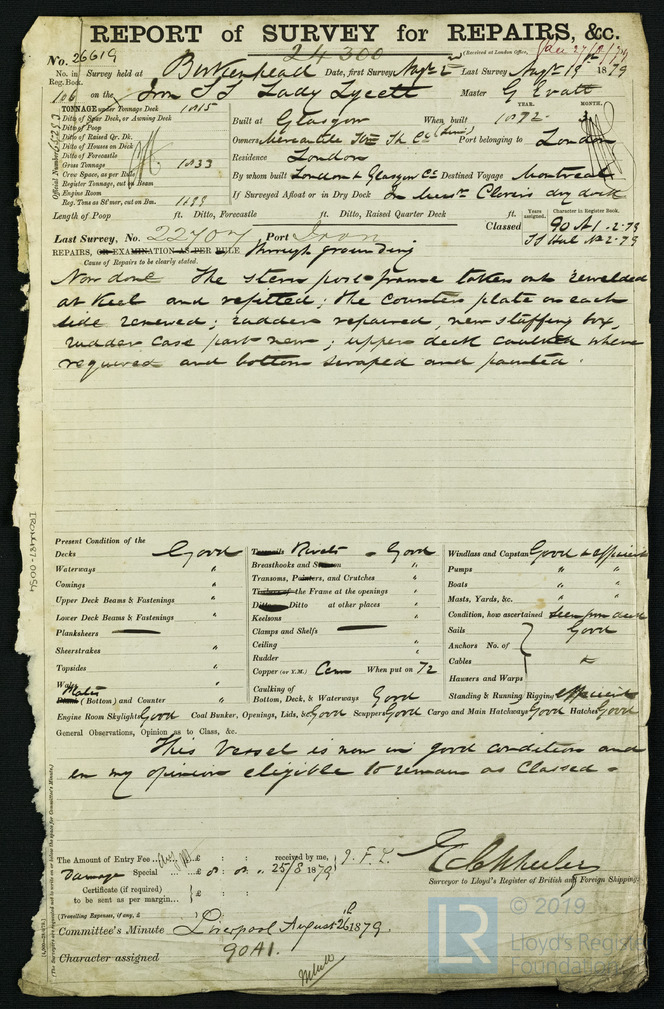 REPORT of SURVEY for REPAIRS, &c.
24300
(Received at London Office,
No. 26619
No. in Survey held at Birkenhead Date, first Survey Augst 2nd Last Survey Augst 19th 1879
Reg. Book.
106 on the Iron SS Lady Lycett Master G Evatt
TONNAGE under Tonnage Deck 1815
Ditto of Spar Deck, or Awning Deck
Ditto of Poop
Ditto of Raised Qr. Dk.
Ditto of Houses on Deck
Ditto of Forecastle
Gross Tonnage 1833
Crew Space, as per Rule
Register Tonnage, cut on Beam
Engine Room
Reg. Tons as St'mer, cut on Bm.
Official Number
YEAR. MONTH.
Built at Glasgow When built 1872. 3
Owners Mercantile Stm Sh. Co (Lim) Port belonging to London
Residence London
By whom built London & Glasgow Co Destined Voyage Montreal
If Surveyed Afloat or in Dry Dock In Messrs Clover's dry dock
Length of Poop ft. Ditto, Forecastle ft. Ditto, Raised Quarter Deck ft.
Years assigned. Character in Register Book.
Classed 90 A1. 2.79
Last Survey, No. 22707 Port Iron
REPAIRS, OR EXAMINATION AS PER RULE through grounding
Cause of Repairs to be clearly stated.
Now done The stern post frame taken out rewelded
at keel and refitted; the counter plate on each
side renewed; rudder repaired, new stuffing box,
rudder case part new; upper deck caulked where
required and bottom scraped and painted.
Present Condition of the
Decks Good
Waterways "
Comings "
Upper Deck Beams & Fastenings "
Lower Deck Beams & Fastenings "
Planksheers
Sheerstrakes "
Topsides "
Wales "
Plates (Bottom) and Counter "
Treenails Rivets Good
Breasthooks and Stemson "
Transoms, Pointers, and Crutches "
Timbers of the Frame at the openings "
Ditto Ditto at other places "
Keelsons "
Clamps and Shelfs
Ceiling "
Rudder "
Copper (or Y.M.) Cem When put on 72
Caulking of
Bottom, Deck, & Waterways Good
Windlass and Capstan Good & efficient
Pumps " "
Boats " "
Masts, Yards, &c. " "
Condition, how ascertained seen from deck
Sails Good
Anchors No. of
Cables
Hausers and Warps
Standing & Running Rigging efficient
Engine Room Skylights Good Coal Bunker, Openings, Lids, &c Good Scuppers Good Cargo and Main Hatchways Good Hatches Good
General Observations, Opinion as to Class, &c.
This Vessel is now in good condition and
in my opinion eligible to remain as Classed
The Amount of Entry Fee £ : : received by me,
Damage Special £ 25/8 1879
Certificate (if required)
to be sent as per margin £ : :
(Travelling Expenses, if any, £ )
Surveyor to Lloyd's Register of British and Foreign Shipping.
Committee's Minute Liverpool August 26 1879
Character assigned 90A1.
IRON487-0054
© 2019
LR
Lloyd's Register
Foundation